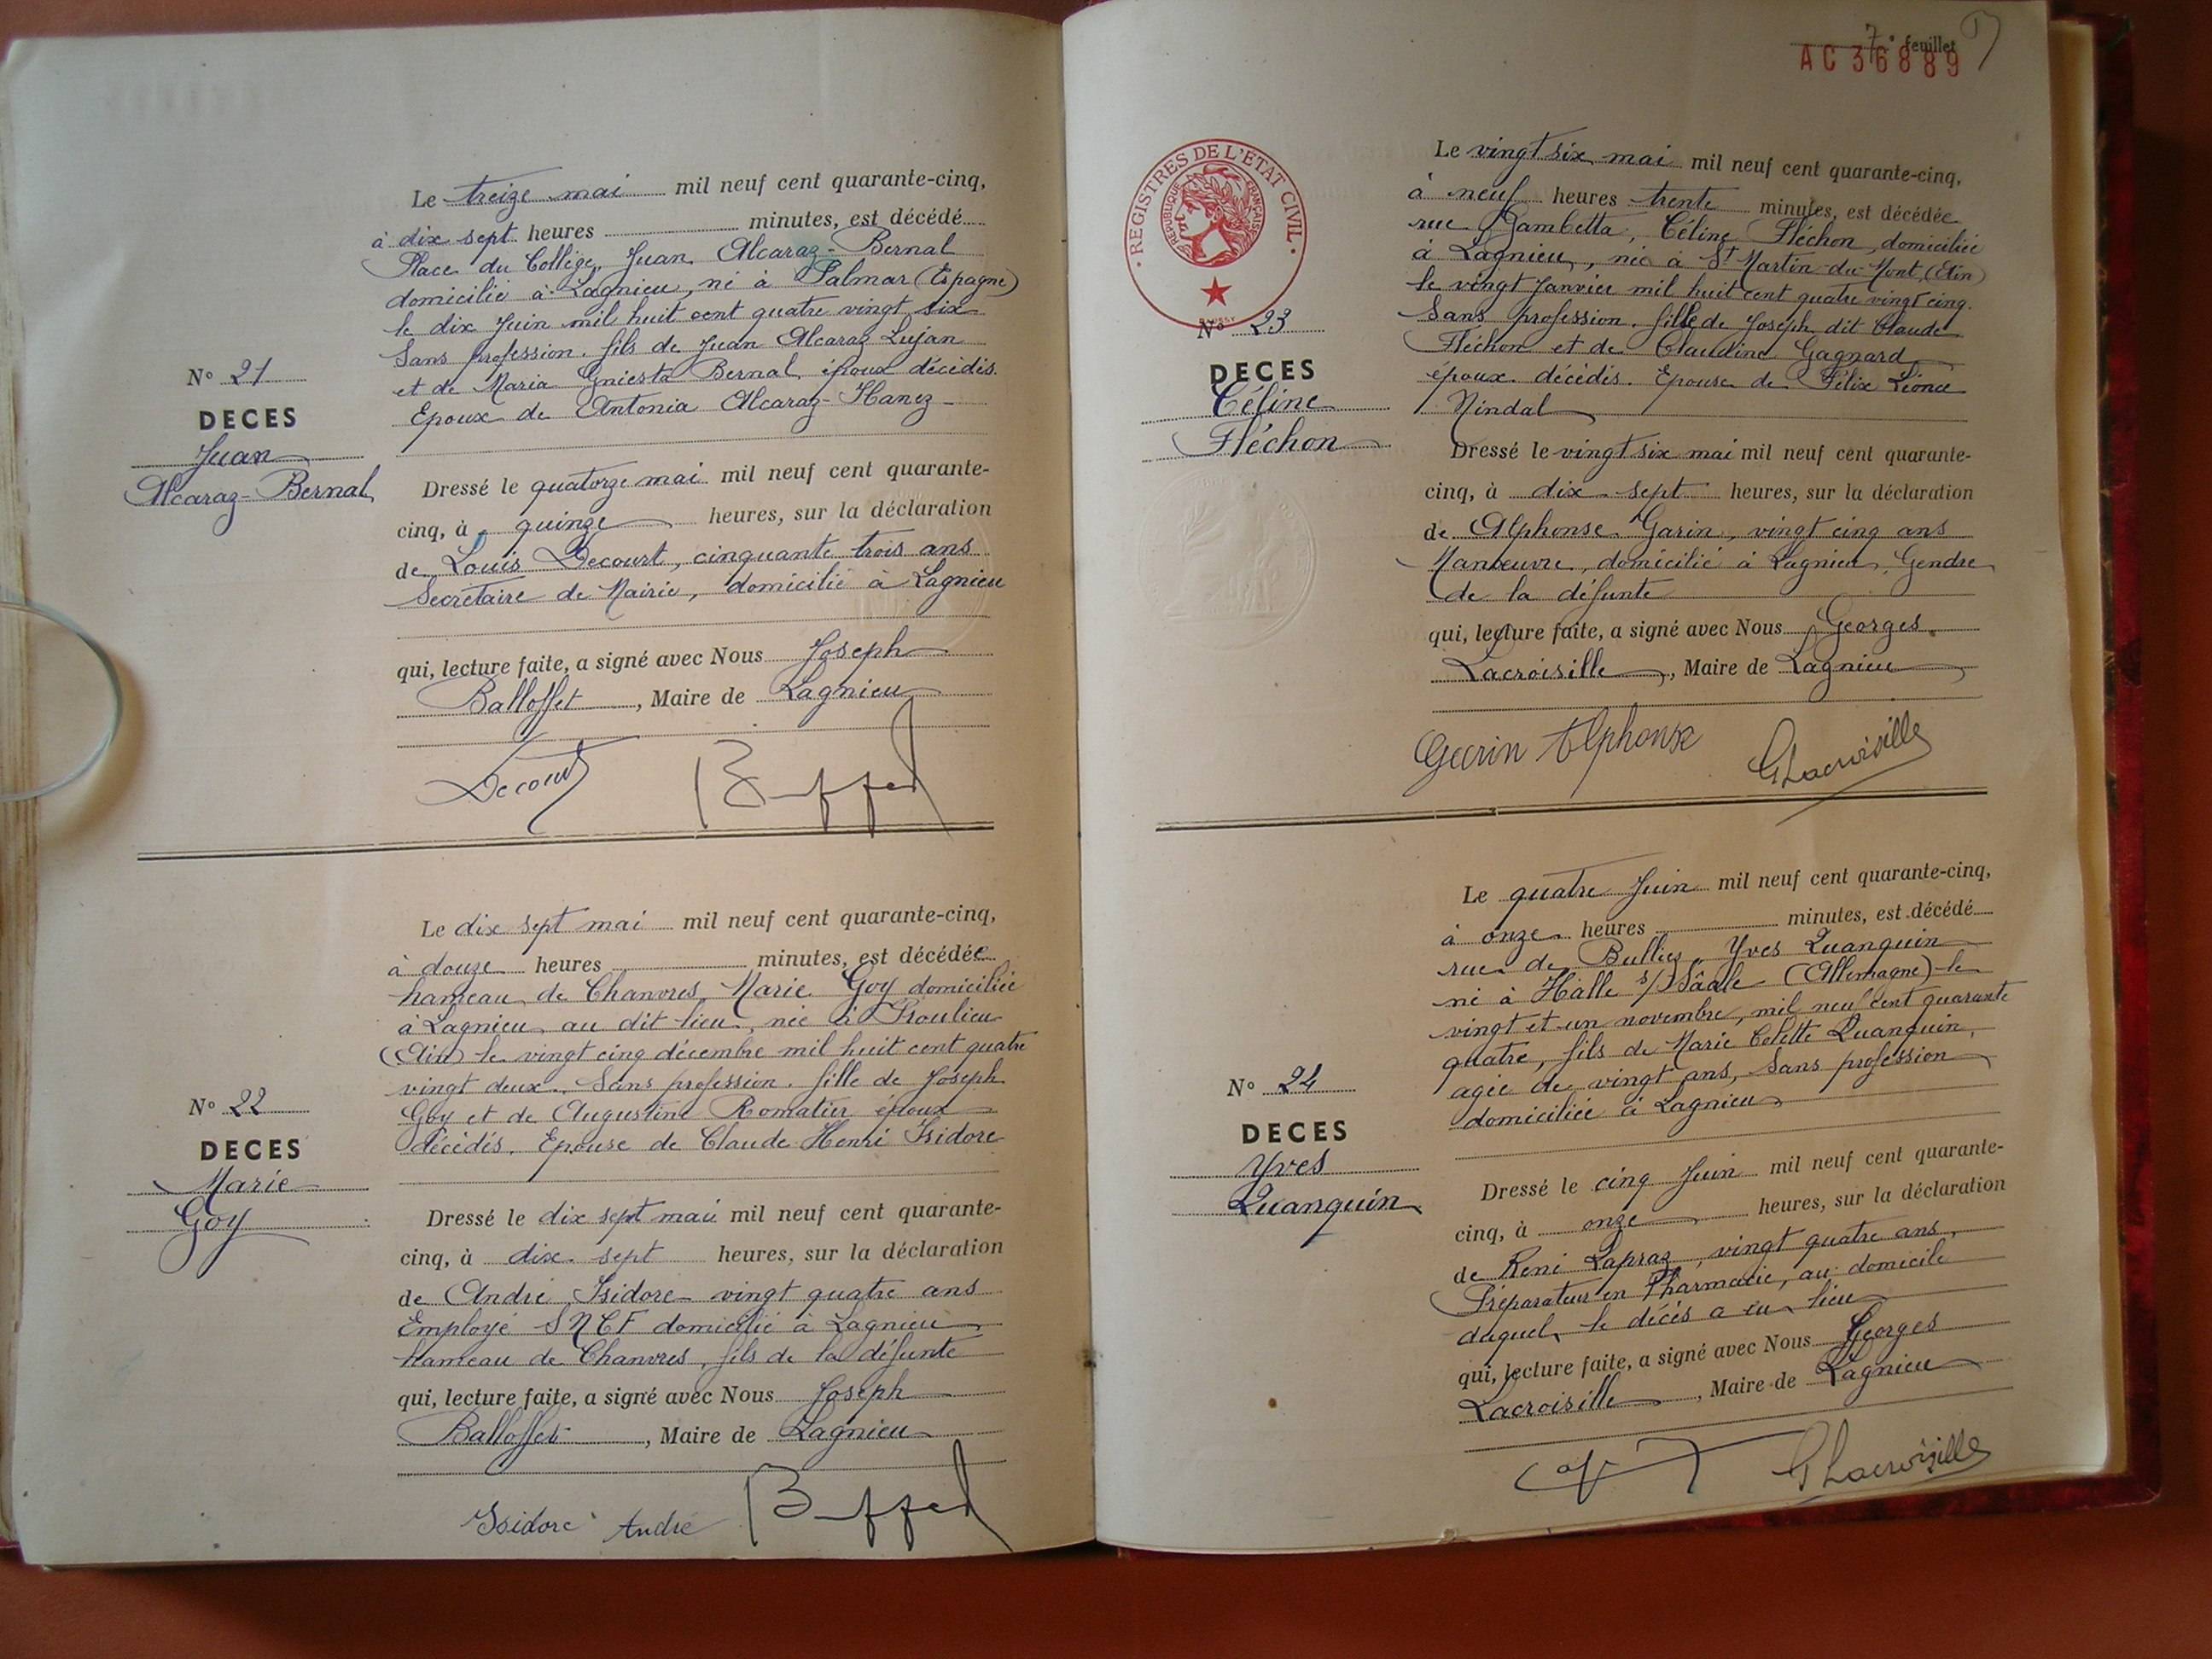 Le treize mai mil neuf cent quarante-cinq,
à dix sept heures minutes, est décédé
Place du Collège, Juan Alcaraz-Bernal
domicilié à Lagnieu, né à Palmar (Espagne)
le dix Juin mil huit cent quatre vingt six
Sans profession. fils de Juan Alcaraz Lujan
et de Maria Gniesta Bernal, époux décédés.
Epoux de Antonia Alcaraz-Hanez
N° 21
DECES
Juan
Alcaraz-Bernal
Dressé le quatorze mai mil neuf cent quarante-
cinq, à quinze heures, sur la déclaration
de Louis Decourt, cinquante trois ans
Secrétaire de Mairie, domicilié à Lagnieu
qui, lecture faite, a signé avec Nous Joseph
Balloffet, Maire de Lagnieu
Decourt
Le dix sept mai mil neuf cent quarante-cinq,
à douze heures minutes, est décédée
hameau de Chanves, Marie Goy domiciliée
à Lagnieu au dit lieu, née à Proulieu
(Ain) le vingt cinq décembre mil huit cent quatre
vingt deux. Sans profession. fille de Joseph
Goy et de Augustine Romatier époux
décédés. Epouse de Claude Henri Isidore
N° 22
DECES
Marie
Goy
Dressé le dix sept mai mil neuf cent quarante-
cinq, à dix sept heures, sur la déclaration
de André Isidore vingt quatre ans
Employé SNCF domicilié à Lagnieu
hameau de Chanves, fils de la défunte
qui, lecture faite, a signé avec Nous Joseph
Balloffet, Maire de Lagnieu
Isidore André
7e feuillet
AC 36889
REGISTRES DE L'ETAT CIVIL
REPUBLIQUE FRANÇAISE
Le vingt six mai mil neuf cent quarante-cinq,
à neuf heures trente minutes, est décédée
rue Gambetta, Céline Fléchon, domiciliée
à Lagnieu, née à St Martin-du-Mont (Ain)
le vingt Janvier mil huit cent quatre vingt cinq.
Sans profession. fille de Joseph dit Claude
Fléchon et de Claudine Gagnard
époux décédés. Epouse de Félix Léonce
Nindal
N° 23
DECES
Céline
Fléchon
Dressé le vingt six mai mil neuf cent quarante-
cinq, à dix-sept heures, sur la déclaration
de Alphonse Garin, vingt cinq ans
Manoeuvre, domicilié à Lagnieu, Gendre
de la défunte
qui, lecture faite, a signé avec Nous Georges
Lacroisille, Maire de Lagnieu
Garin Alphonse GLacroisille
Le quatre Juin mil neuf cent quarante-cinq,
à onze heures minutes, est décédé
rue de Bullies, Yves Quanquin
né à Halle s/Sâale (Allemagne) le
vingt et un novembre, mil neuf cent quarante
quatre, fils de Marie Colette Quanquin,
agée de vingt ans, Sans profession
domiciliée à Lagnieu
N° 24
DECES
Yves
Quanquin
Dressé le cinq Juin mil neuf cent quarante-
cinq, à onze heures, sur la déclaration
de René Lapraz, vingt quatre ans,
Préparateur en Pharmacie, au domicile
duquel le décès a eu lieu
qui, lecture faite, a signé avec Nous Georges
Lacroisille, Maire de Lagnieu
GLacroisille